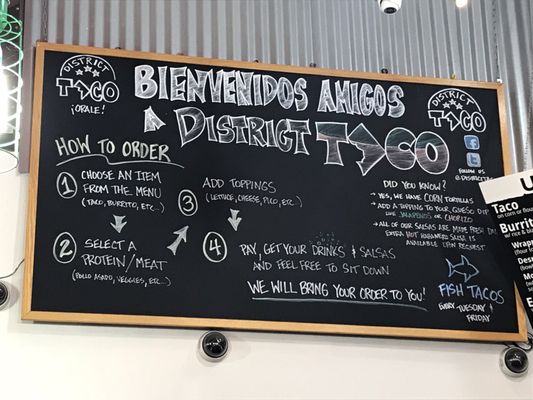 DISTRICT
TACO
¡ORALE!
BIENVENIDOS AMIGOS
A DISTRICT TACO
DISTRICT
TACO
FOLLOW US
HOW TO ORDER
1 CHOOSE AN ITEM
FROM THE MENU
(TACO, BURRITO, ETC...)
2 SELECT A
PROTEIN/MEAT
(POLLO ASADO, VEGGIES, ETC...)
3 ADD TOPPINGS
(LETTUCE, CHEESE, PICO, ETC...)
4 PAY, GET YOUR DRINKS & SALSAS
AND FEEL FREE TO SIT DOWN
WE WILL BRING YOUR ORDER TO YOU!
DID YOU KNOW?
YES, WE HAVE CORN TORTILLAS
ADD A TOPPING TO YOUR QUESO DIP
LIKE JALAPENOS OR CHORIZO
ALL OF OUR SALSAS ARE MADE FRESH
EXTRA HOT HABANERO SALSA IS
AVAILABLE UPON REQUEST
FISH TACOS
EVERY TUESDAY &
FRIDAY
Taco
on corn or flou
Burrito
w/ rice & b
Wrap